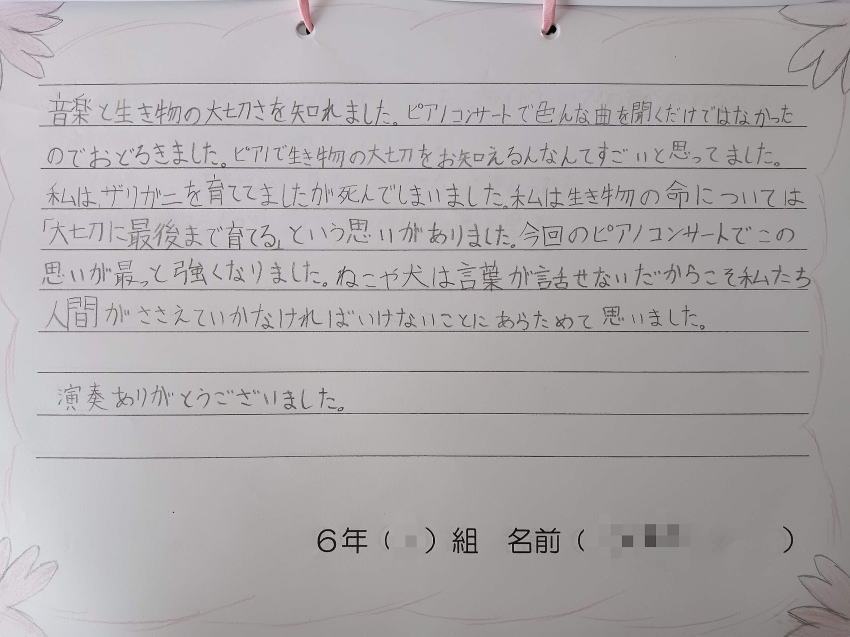 音楽と生き物の大切さを知れました。ピアノコンサートで色んな曲を聞くだけではなかった
のでおどろきました。ピアノで生き物の大切をお知えるんなんてすごいと思ってました。
私は、ザリガニを育ててましたが死んでしまいました。私は生き物の命については
「大切に最後まで育てる」という思いがありました。今回のピアノコンサートでこの
思いが最っと強くなりました。ねこや犬は言葉が話せないだからこそ私たち
人間がささえていかなければいけないことにあらためて思いました。
演奏ありがとうございました。
6年( )組 名前( )